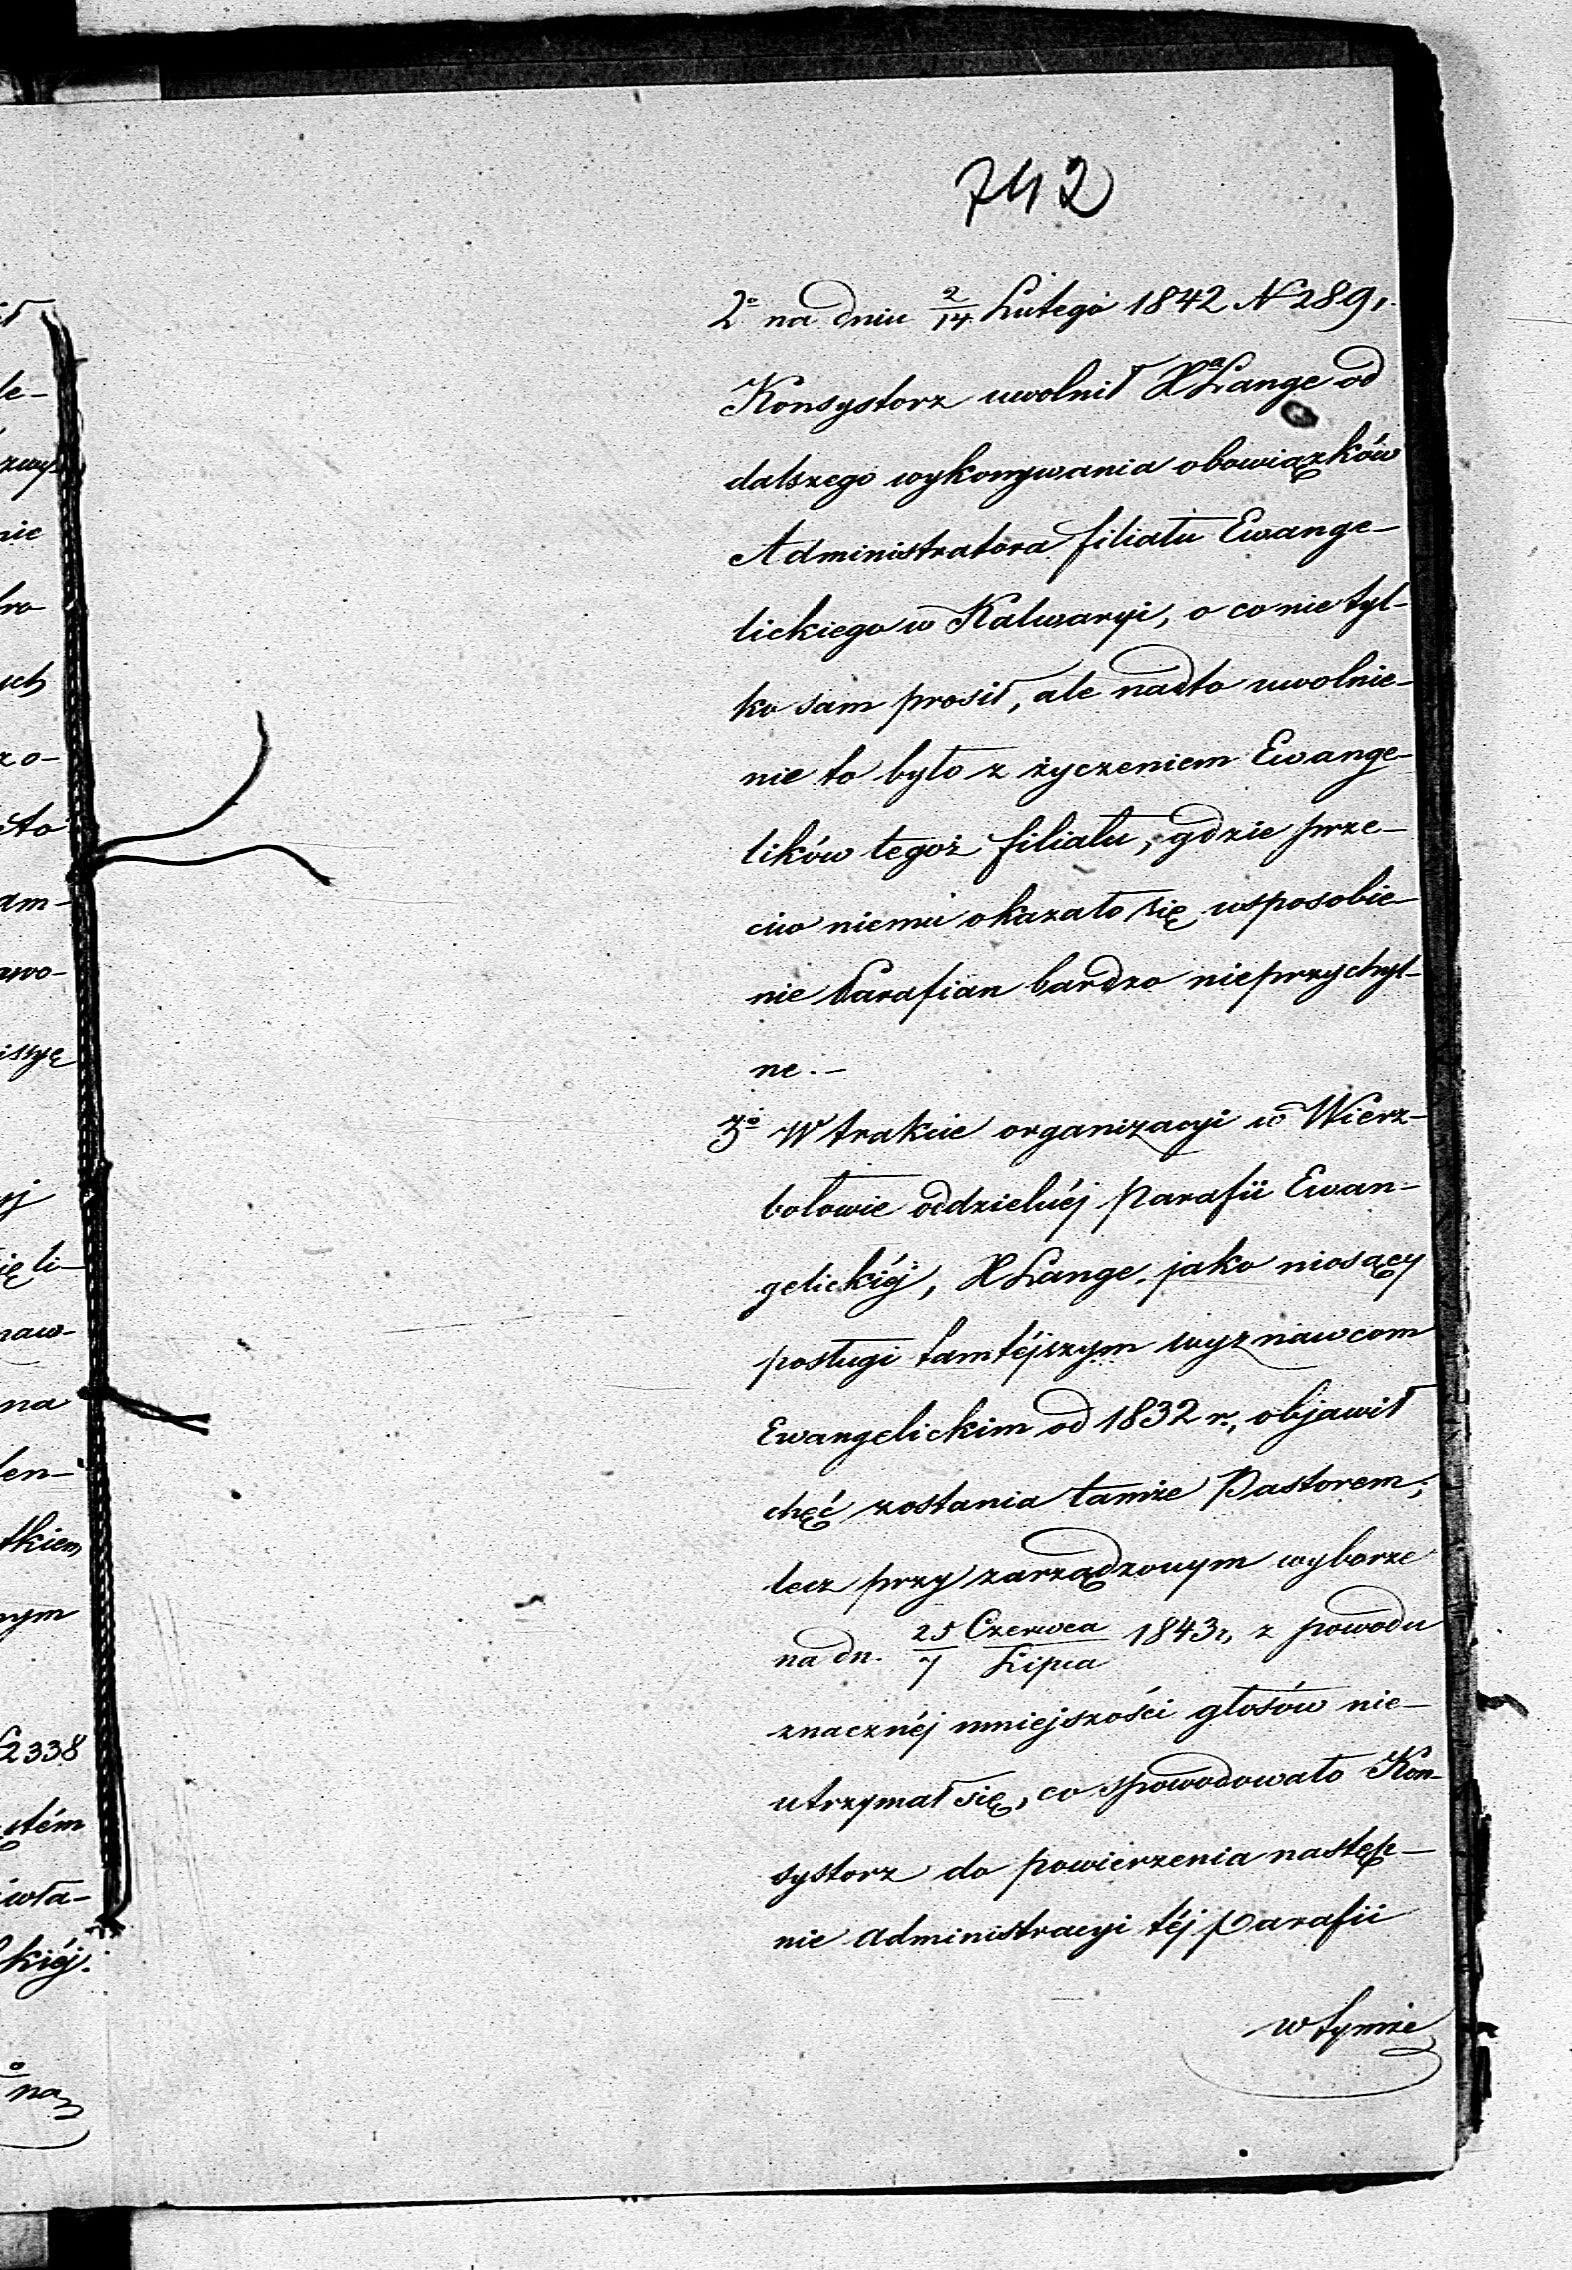 742
2º na dniu 2/14 Lutego 1842 N 289,
Konsystorz uwolnił Xa Lange od
dalszego wykonywania obowiązków
Administratora filiału Ewange-
lickiego w Kalwaryi, o co nie tyl-
ko sam prosił, ale nadto uwolnie-
nie to było z życzeniem Ewange-
lików tegoż filiału, gdzie prze-
ciw niemu okazało się usposobie-
nie Parafian bardzo nieprzychyl-
ne.-
3º W trakcie organizacyi w Wierz-
bołowie oddzielnéj Parafii Ewan-
gelickiéj, X Lange, jako niosący
posługi tamtéjszym wyznawcom
Ewangelickim od 1832 r., objawił
chęć zostania tamże Pastorem;
lecz przy zarządzonym wyborze
na dn. 25 Czerwca/7 Lipca 1843 r, z powodu
znacznéj mniejszości głosów nie-
utrzymał się, co spowodowało Kon-
systorz do powierzenia następ-
nie administracyi téj Parafii
w tymże
le-
nie
ych
zo-
am-
awo-
iszyę
naw-
na
tkiem
nym
2338
wła-
kiéj.
na